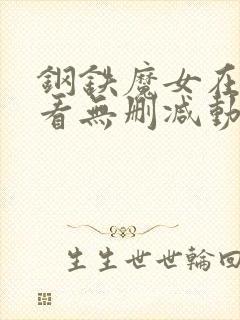 鋼鉄魔女在
看無刪減動
生生世世輪回